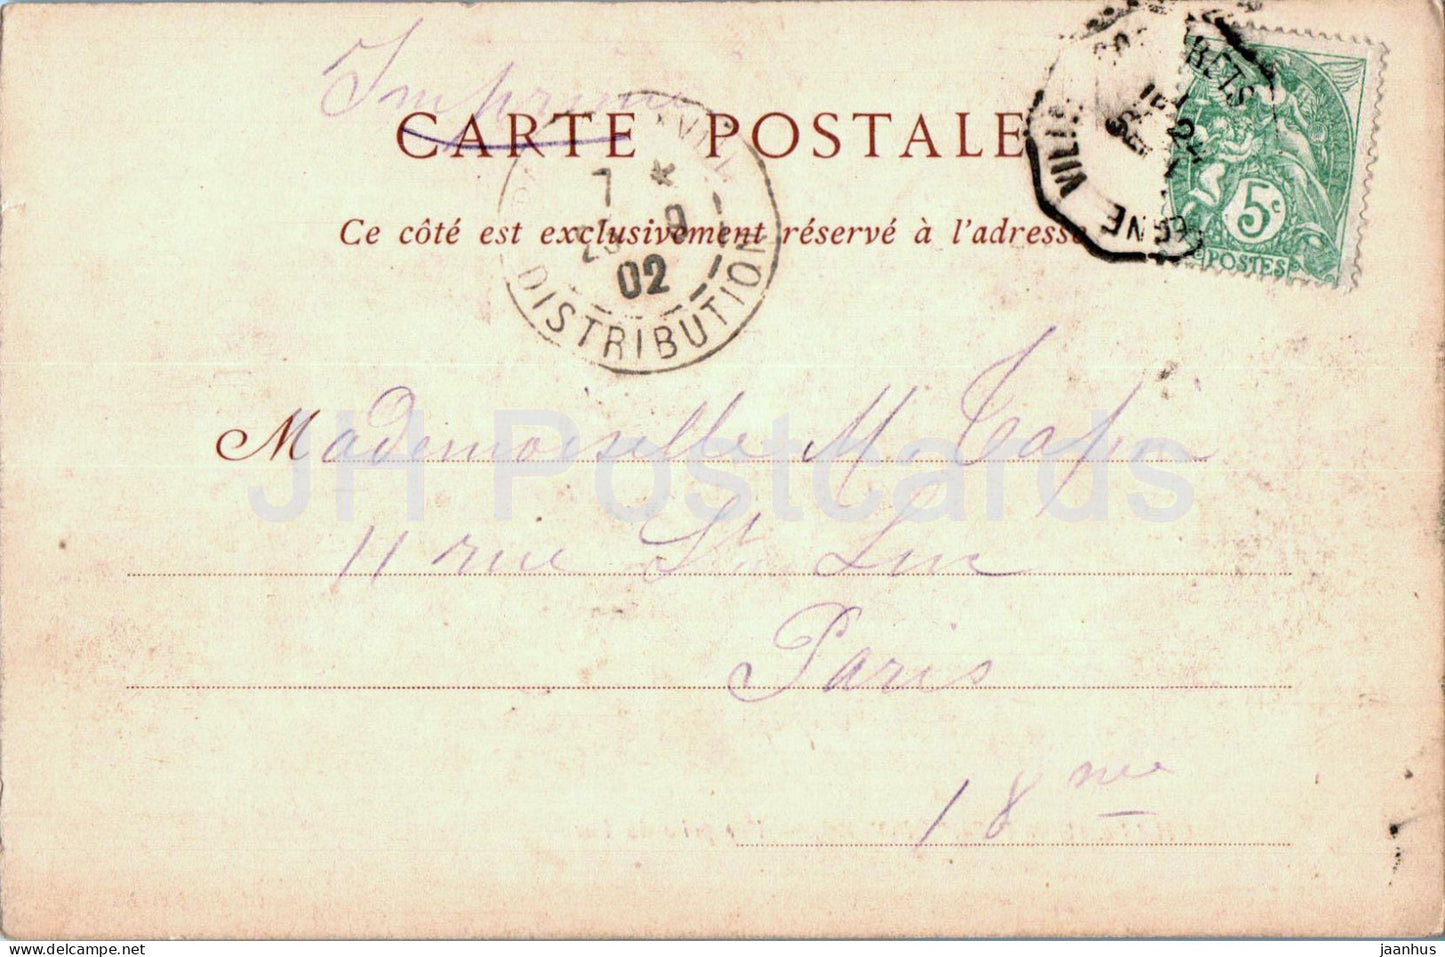 Imprimé
CARTE POSTALE
Ce côté est exclusivement réservé à l'adresse
7 *
9
02
DISTRIBUTION
5c
POSTES
Mademoiselle M. Tapi
11 rue St Luc
Paris
18me
JH Postcards
www.delcampe.net
jaanhus